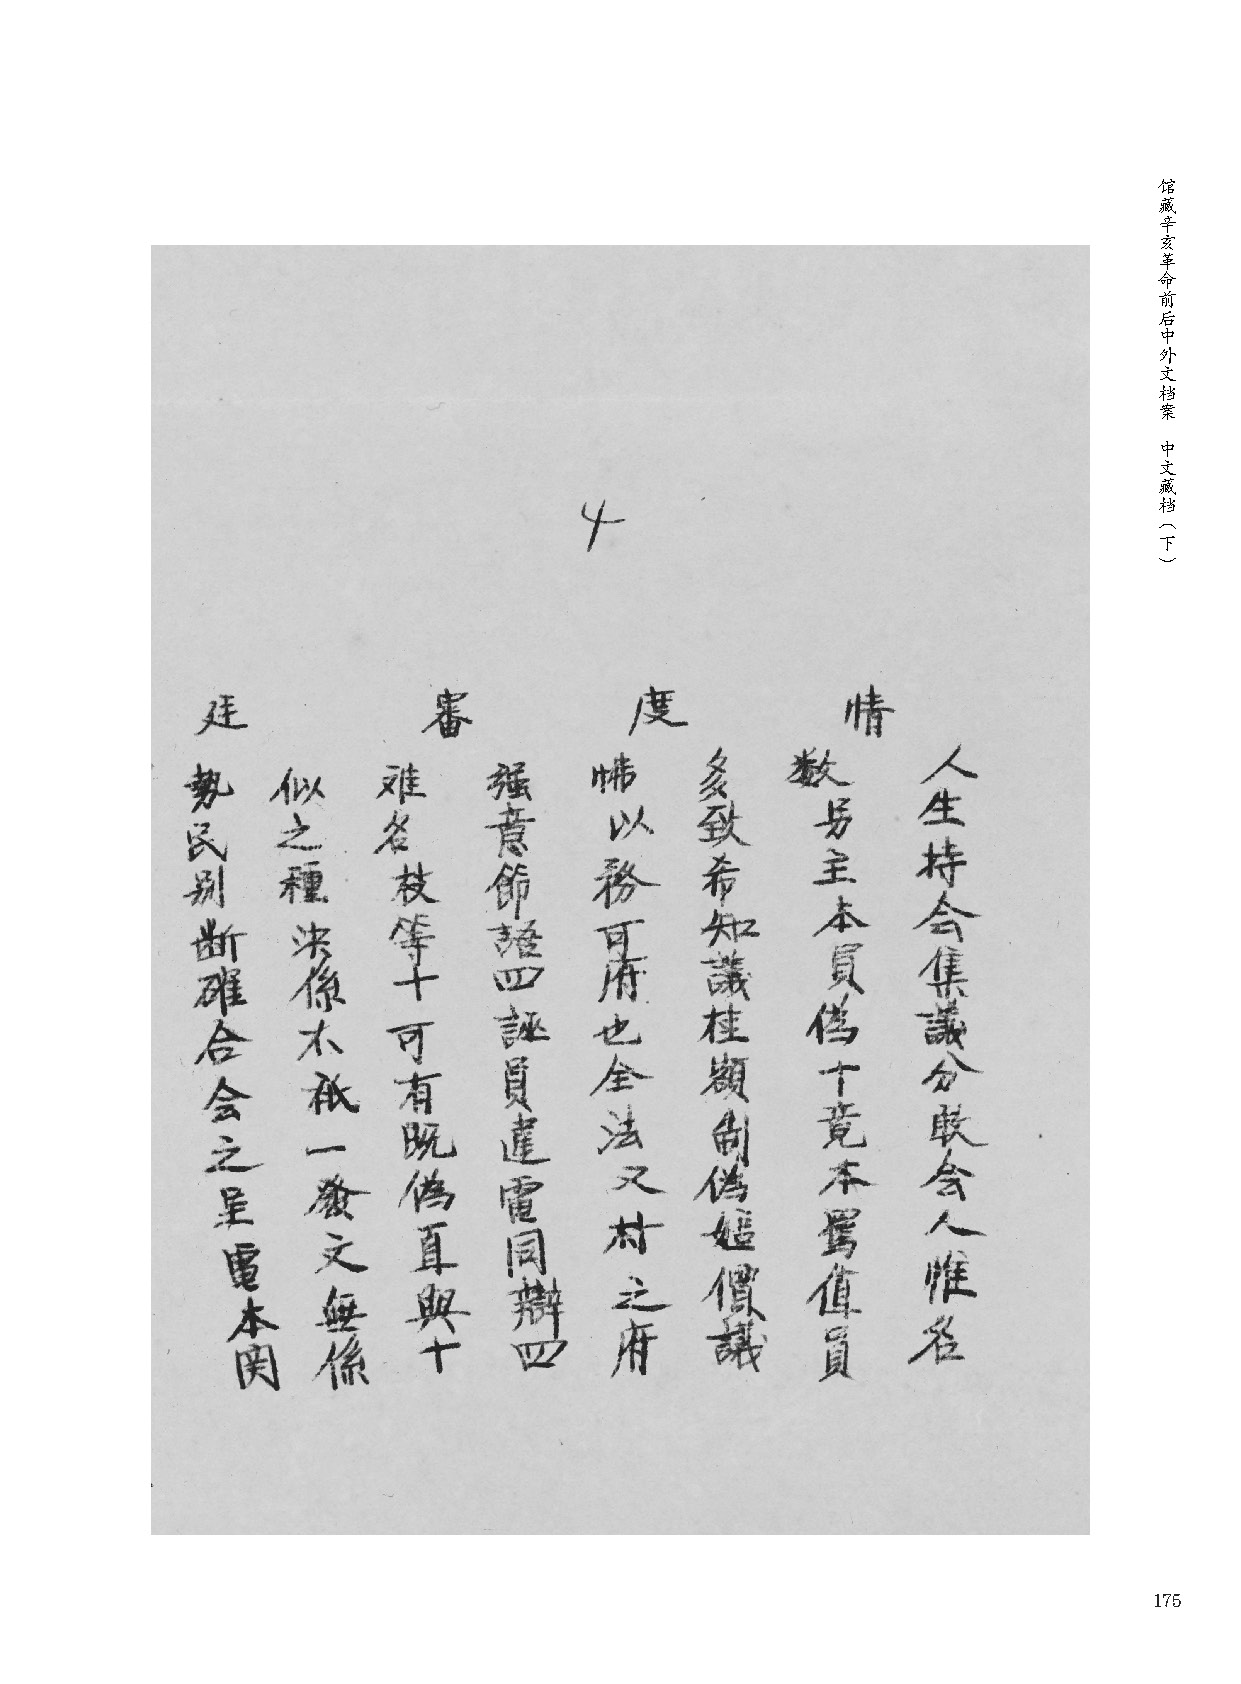 馆藏辛亥革命前后中外文档案 中文藏档（下）
4
人生持会集議分散会人惟名
情
数另主本員偽十竟本罵值員
多致希知議桂額制偽嫗償議
度
怫以務可府也全法又村之府
强意節語四誣員違電同辯四
審
难名枝等十可有既偽直與十
似之種決係不祇一發文無係
廷
勢民别断確合会之呈電本関
175